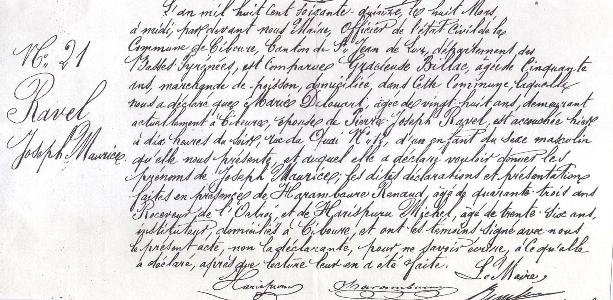 N°. 21
Ravel
Joseph Maurice
L'an mil huit cent soixante-quinze, le huit Mars,
à midi, par devant nous Maire, Officier de l'état civil de la
Commune de Ciboure, Canton de St Jean de Luz, département des
Basses Pyrénées, est comparue Gracieuse Billac, âgée de Cinquante
ans, marchande de poisson, domiciliée dans cette Commune, laquelle
nous a déclaré que Marie Delouart, âgée de vingt-huit ans, demeurant
actuellement à Ciboure, épouse de Pierre Joseph Ravel, est accouchée hier
à dix heures du soir, rue du Quai N° 12, d'un enfant du sexe masculin
qu'elle nous présente, et auquel elle a déclaré vouloir donner les
prénoms de Joseph Maurice, les dites déclarations et présentation
faites en présence de Haramboure Renaud, âgé de quarante-trois ans
Receveur de l'Octroi, et de Harispuru Michel, âgé de trente-six ans,
instituteur, domiciliés à Ciboure, et ont les témoins signé avec nous
le présent acte, non la déclarante, pour ne savoir écrire, à ce qu'elle
a déclaré, après que lecture leur en a été faite.
Le Maire,
Harispuru Haramboure